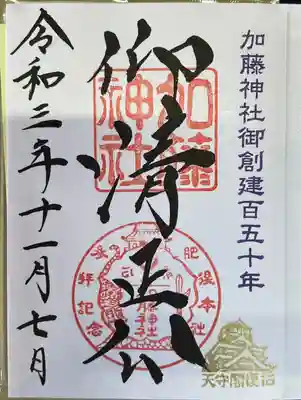 加藤神社御創建百五十年
仰清正公
加藤
神社
肥後本社
参拝記念
天守閣復旧
令和三年十一月七日